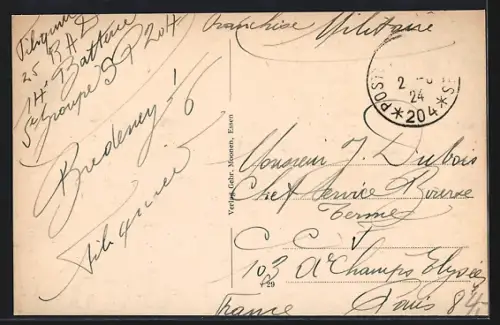 25 RAD
14e Batterie
5e Groupe SP 204
Bredeney
Franchise Militaire
POSTE
2
24
*204*
Verlag Gebr. Moonen, Essen
29
Monsieur J. Dubois
Chef Service Bourse
Terme
C C V
103 Ave Champs Elysées
Paris 8e
France